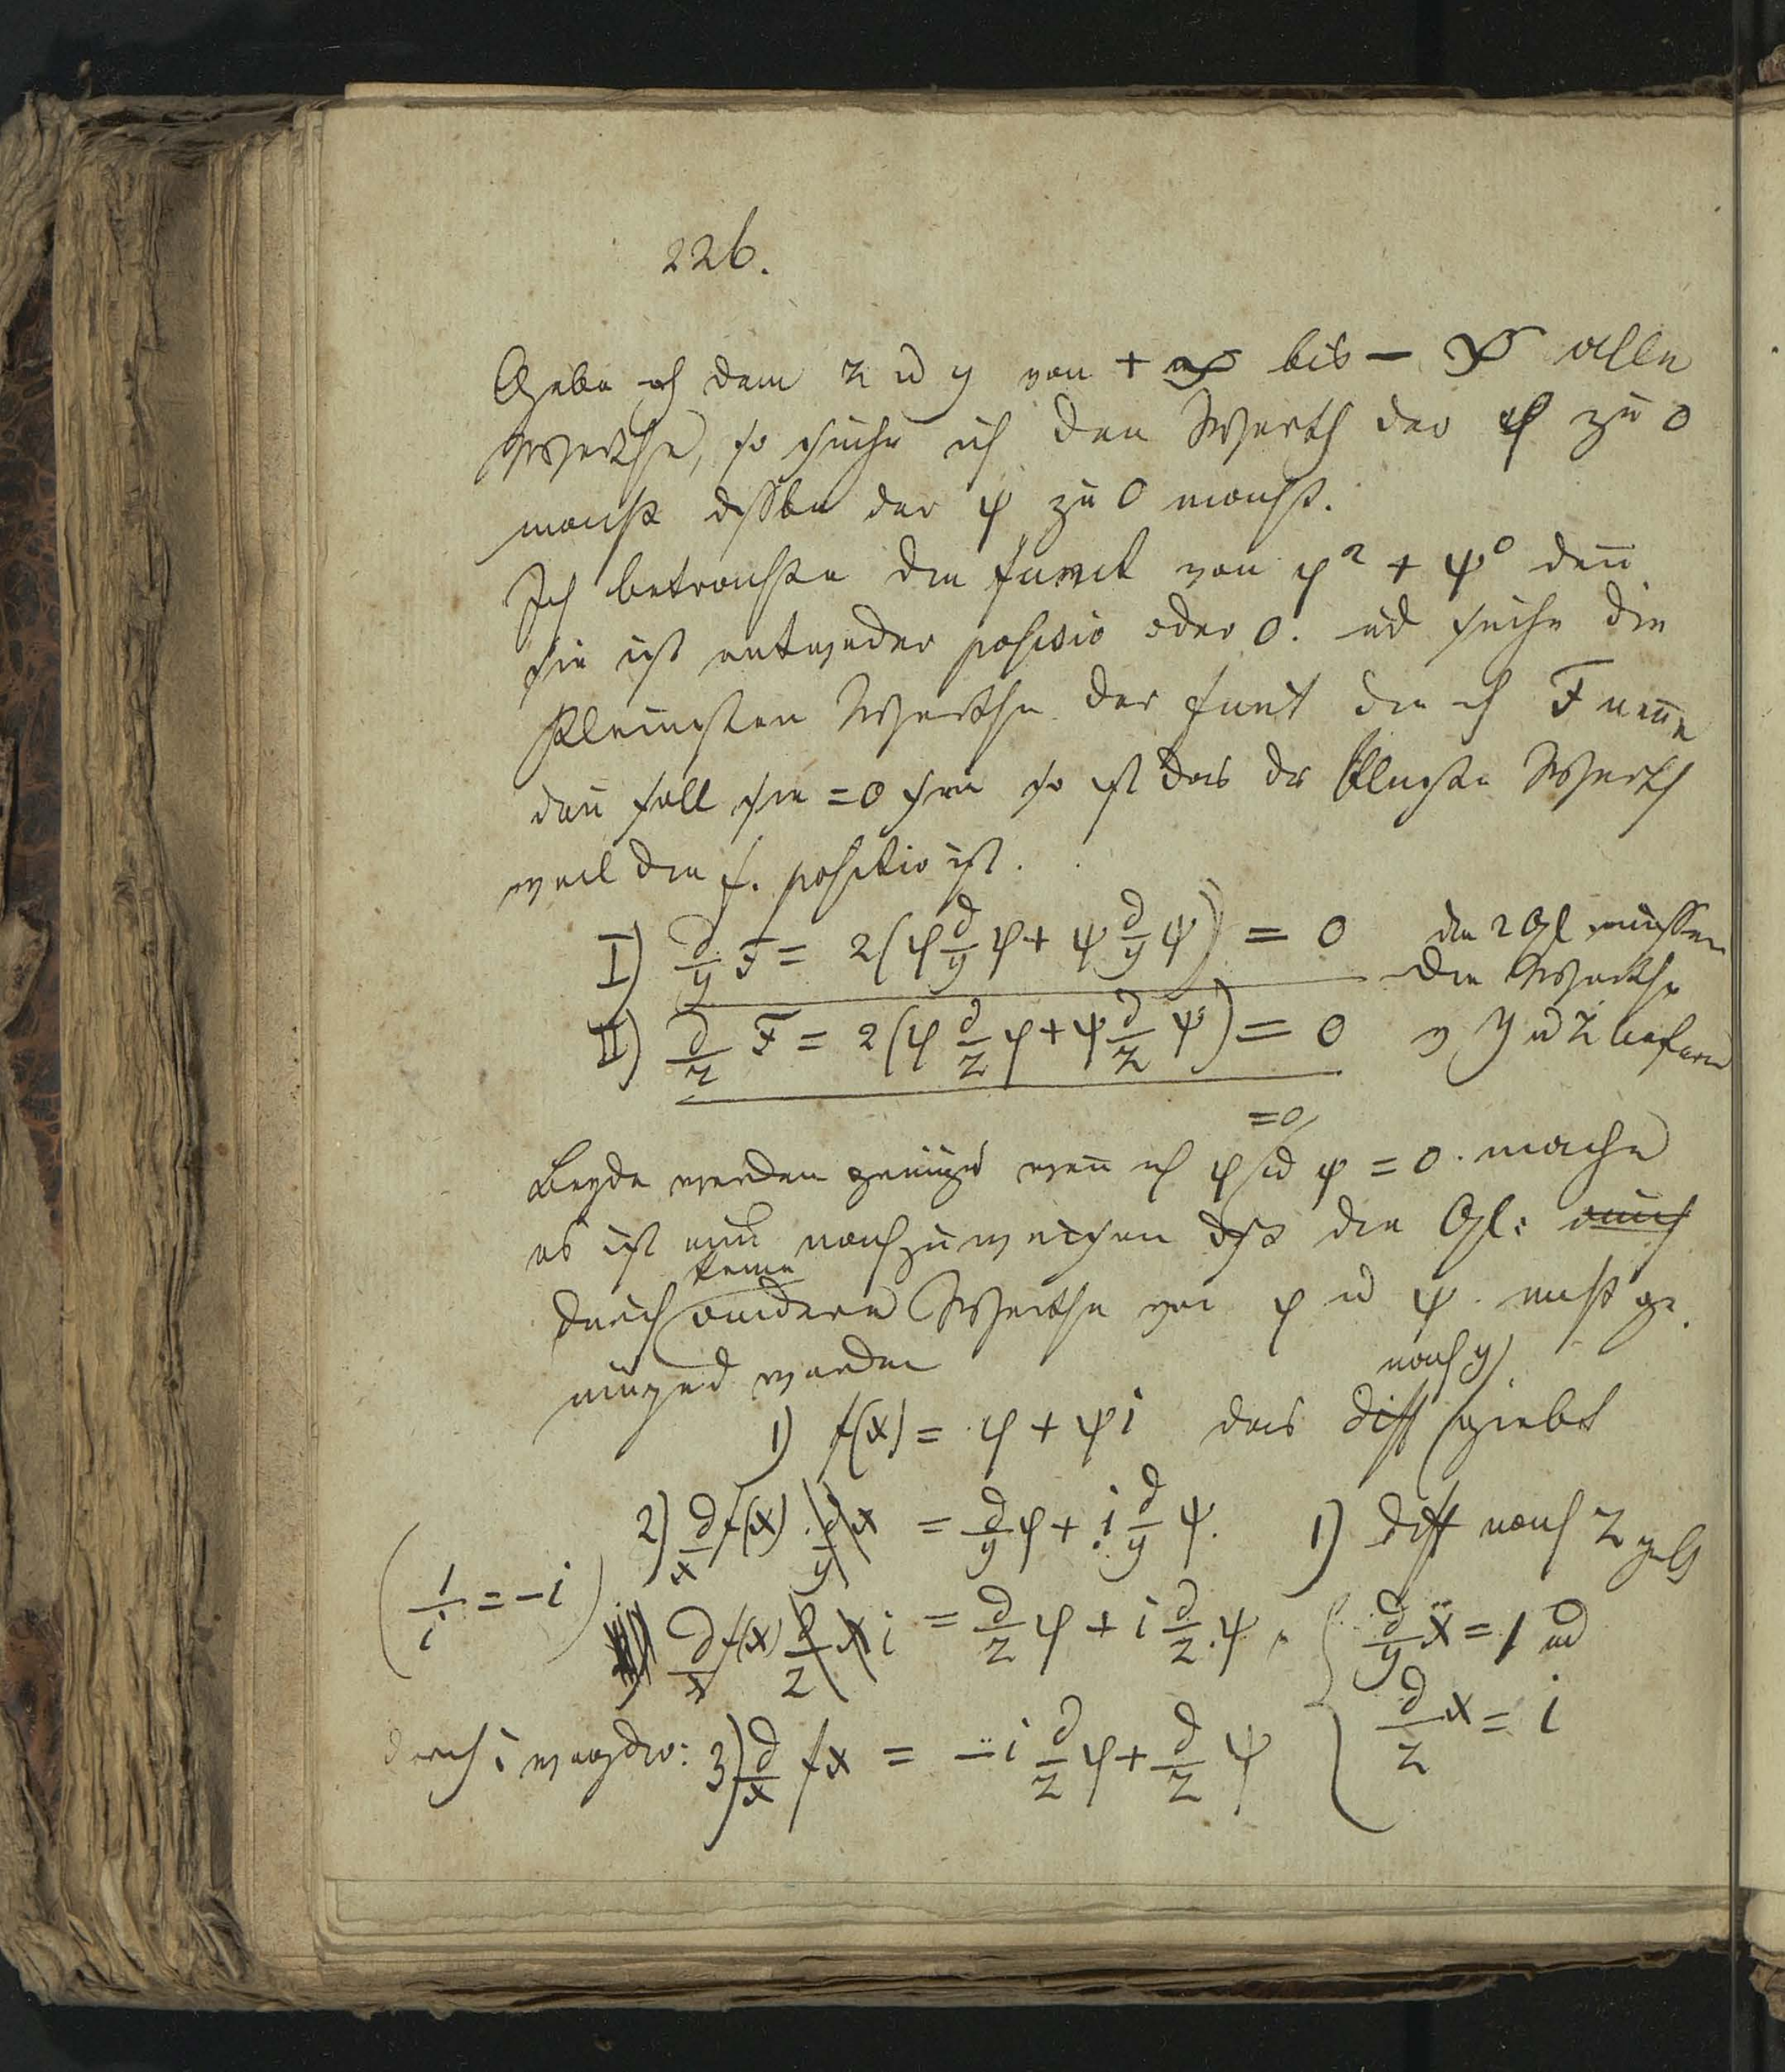 226.
Gebe ich dem z u y von + ∞ bis − ∞ alle
Werthe, so suche ich den Werth der φ zu 0
macht dsslbe der ψ zu 0 macht.
Ich betrachte die funct von φ² + ψ² deñ
sie ist entweder positiv oder 0. ud suche die
kleinsten Werthe der funct die ich F neñe
deñ soll sie = 0 sein so ist das dr kleinste Werth
weil die f. positiv ist.
I) d/y F = 2(φ d/y φ + ψ d/y ψ) = 0 die 2 Gl müssen
die Werthe
II) d/z F = 2(φ d/z φ + ψ d/z ψ) = 0 v y u z liefern
=0
Beyde werden genügd weñ ich φ ud ψ = 0 mache
es ist nun nachzuweisen dß die Gl: auch
keine
durch andere Werthe von φ u ψ nicht ge-
nüged werden
nach y
1) f(x) = φ + ψi das diff giebt
2) d/x f(x) . d/y x = d/y φ + i d/y ψ. 1) diff nach z gibt
(1/i = −i)
d/x f(x) d/z x i = d/z φ + i d/z ψ { d/y x = 1 ud
d/z x = i
durch i 3) d/x fx = −i d/z φ + d/z ψ